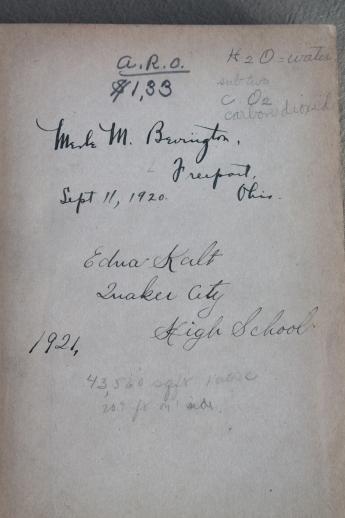 A.R.O.
$1,33
H2O = water
sub two
C O2
carbon dioxid
Merle M. Bevington,
Freeport,
Sept 11, 1920. Ohio.
Edna Kalt
Quaker City
High School
1921,
43,560 sq ft 1 acre
209 ft on side.